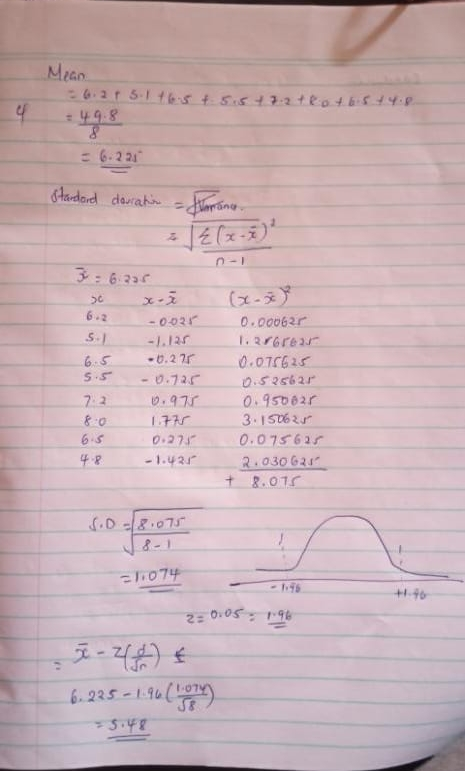 Mean
= 6.2 + 5.1 + 6.5 + 5.5 + 7.2 + 8.0 + 6.5 + 4.8
4 = 49.8
8
= 6.225
Standard deviation = √Variance.
= √Σ(x-x̄)²
n-1
x̄ = 6.225
x x-x̄ (x-x̄)²
6.2 -0.025 0.000625
5.1 -1.125 1.265625
6.5 0.275 0.075625
5.5 -0.725 0.525625
7.2 0.975 0.950625
8.0 1.775 3.150625
6.5 0.275 0.075625
4.8 -1.425 2.030625
+ 8.075
S.D = √8.075
8-1
= 1.074
-1.96 +1.96
z = 0.05 = 1.96
= x̄ - z(d/√n)
6.225 - 1.96(1.074/√8)
= 5.48